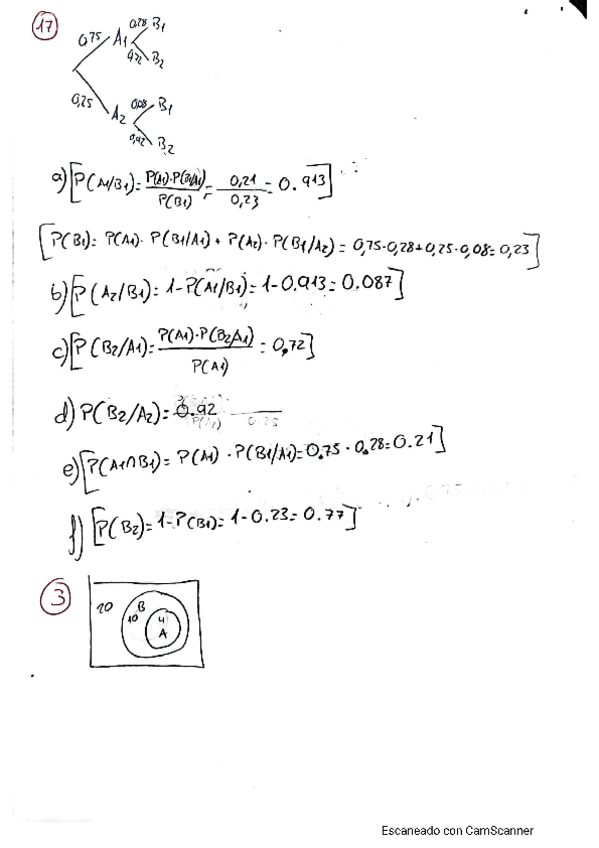 17
0,75 A1 0,28 B1
0,72 B2
0,25 A2 0,08 B1
0,92 B2
a) [P(A1/B1) = P(A1)·P(B1/A1) / P(B1) = 0,21 / 0,23 = 0.913]
[P(B1) = P(A1) · P(B1/A1) + P(A2) · P(B1/A2) = 0,75·0,28+0,25·0,08 = 0,23]
b) [P(A2/B1) = 1-P(A1/B1) = 1-0.913 = 0.087]
c) [P(B2/A1) = P(A1)·P(B2/A1) / P(A1) = 0,72]
d) P(B2/A2) = 0.92
e) [P(A1∩B1) = P(A1) · P(B1/A1) = 0.75 · 0.28 = 0.21]
f) [P(B2) = 1-P(B1) = 1-0.23 = 0.77]
3
20 B
10 4
A
Escaneado con CamScanner